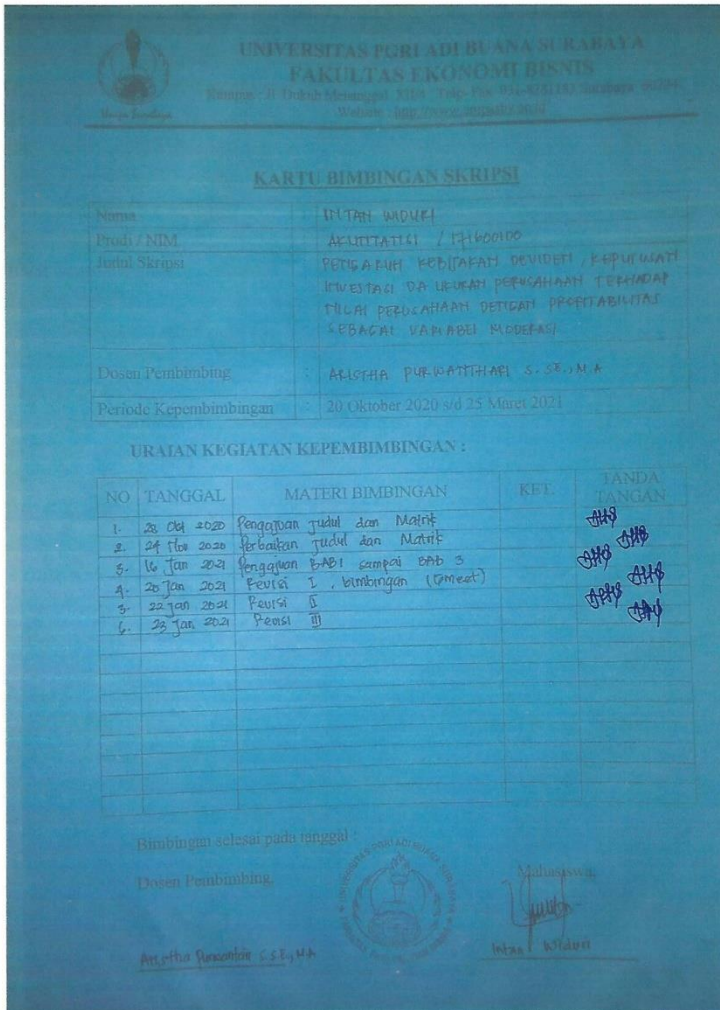 UNIVERSITAS PGRI ADI BUANA SURABAYA
FAKULTAS EKONOMI BISNIS
Kampus : Jl. Dukuh Menanggal Telp. Fax. Surabaya
Website :
KARTU BIMBINGAN SKRIPSI
Nama : INTAN WIDURI
Prodi / NIM : AKUNTANSI / 171600100
Judul Skripsi : PENGARUH KEBIJAKAN DEVIDEN, KEPUTUSAN
INVESTASI DA UKURAN PERUSAHAAN TERHADAP
NILAI PERUSAHAAN DENGAN PROFITABILITAS
SEBAGAI VARIABEL MODERASI
Dosen Pembimbing : PURWANTHARI S. SE., M.A
Periode Kepembimbingan : 20 Oktober 2020 s/d 25 Maret 2021
URAIAN KEGIATAN KEPEMBIMBINGAN :
NO TANGGAL MATERI BIMBINGAN KET. TANDA TANGAN
1. 28 Okt 2020 Pengajuan Judul dan Matrik
2. 24 Nov 2020 Perbaikan Judul dan Matrik
3. 16 Jan 2021 Pengajuan BAB 1 sampai BAB 3
4. 20 Jan 2021 Revisi I, bimbingan (Gmeet)
5. 22 Jan 2021 Revisi II
6. 23 Jan 2021 Revisi III
Bimbingan selesai pada tanggal :
Dosen Pembimbing, Mahasiswa,
S.SE., M.A Intan Widuri